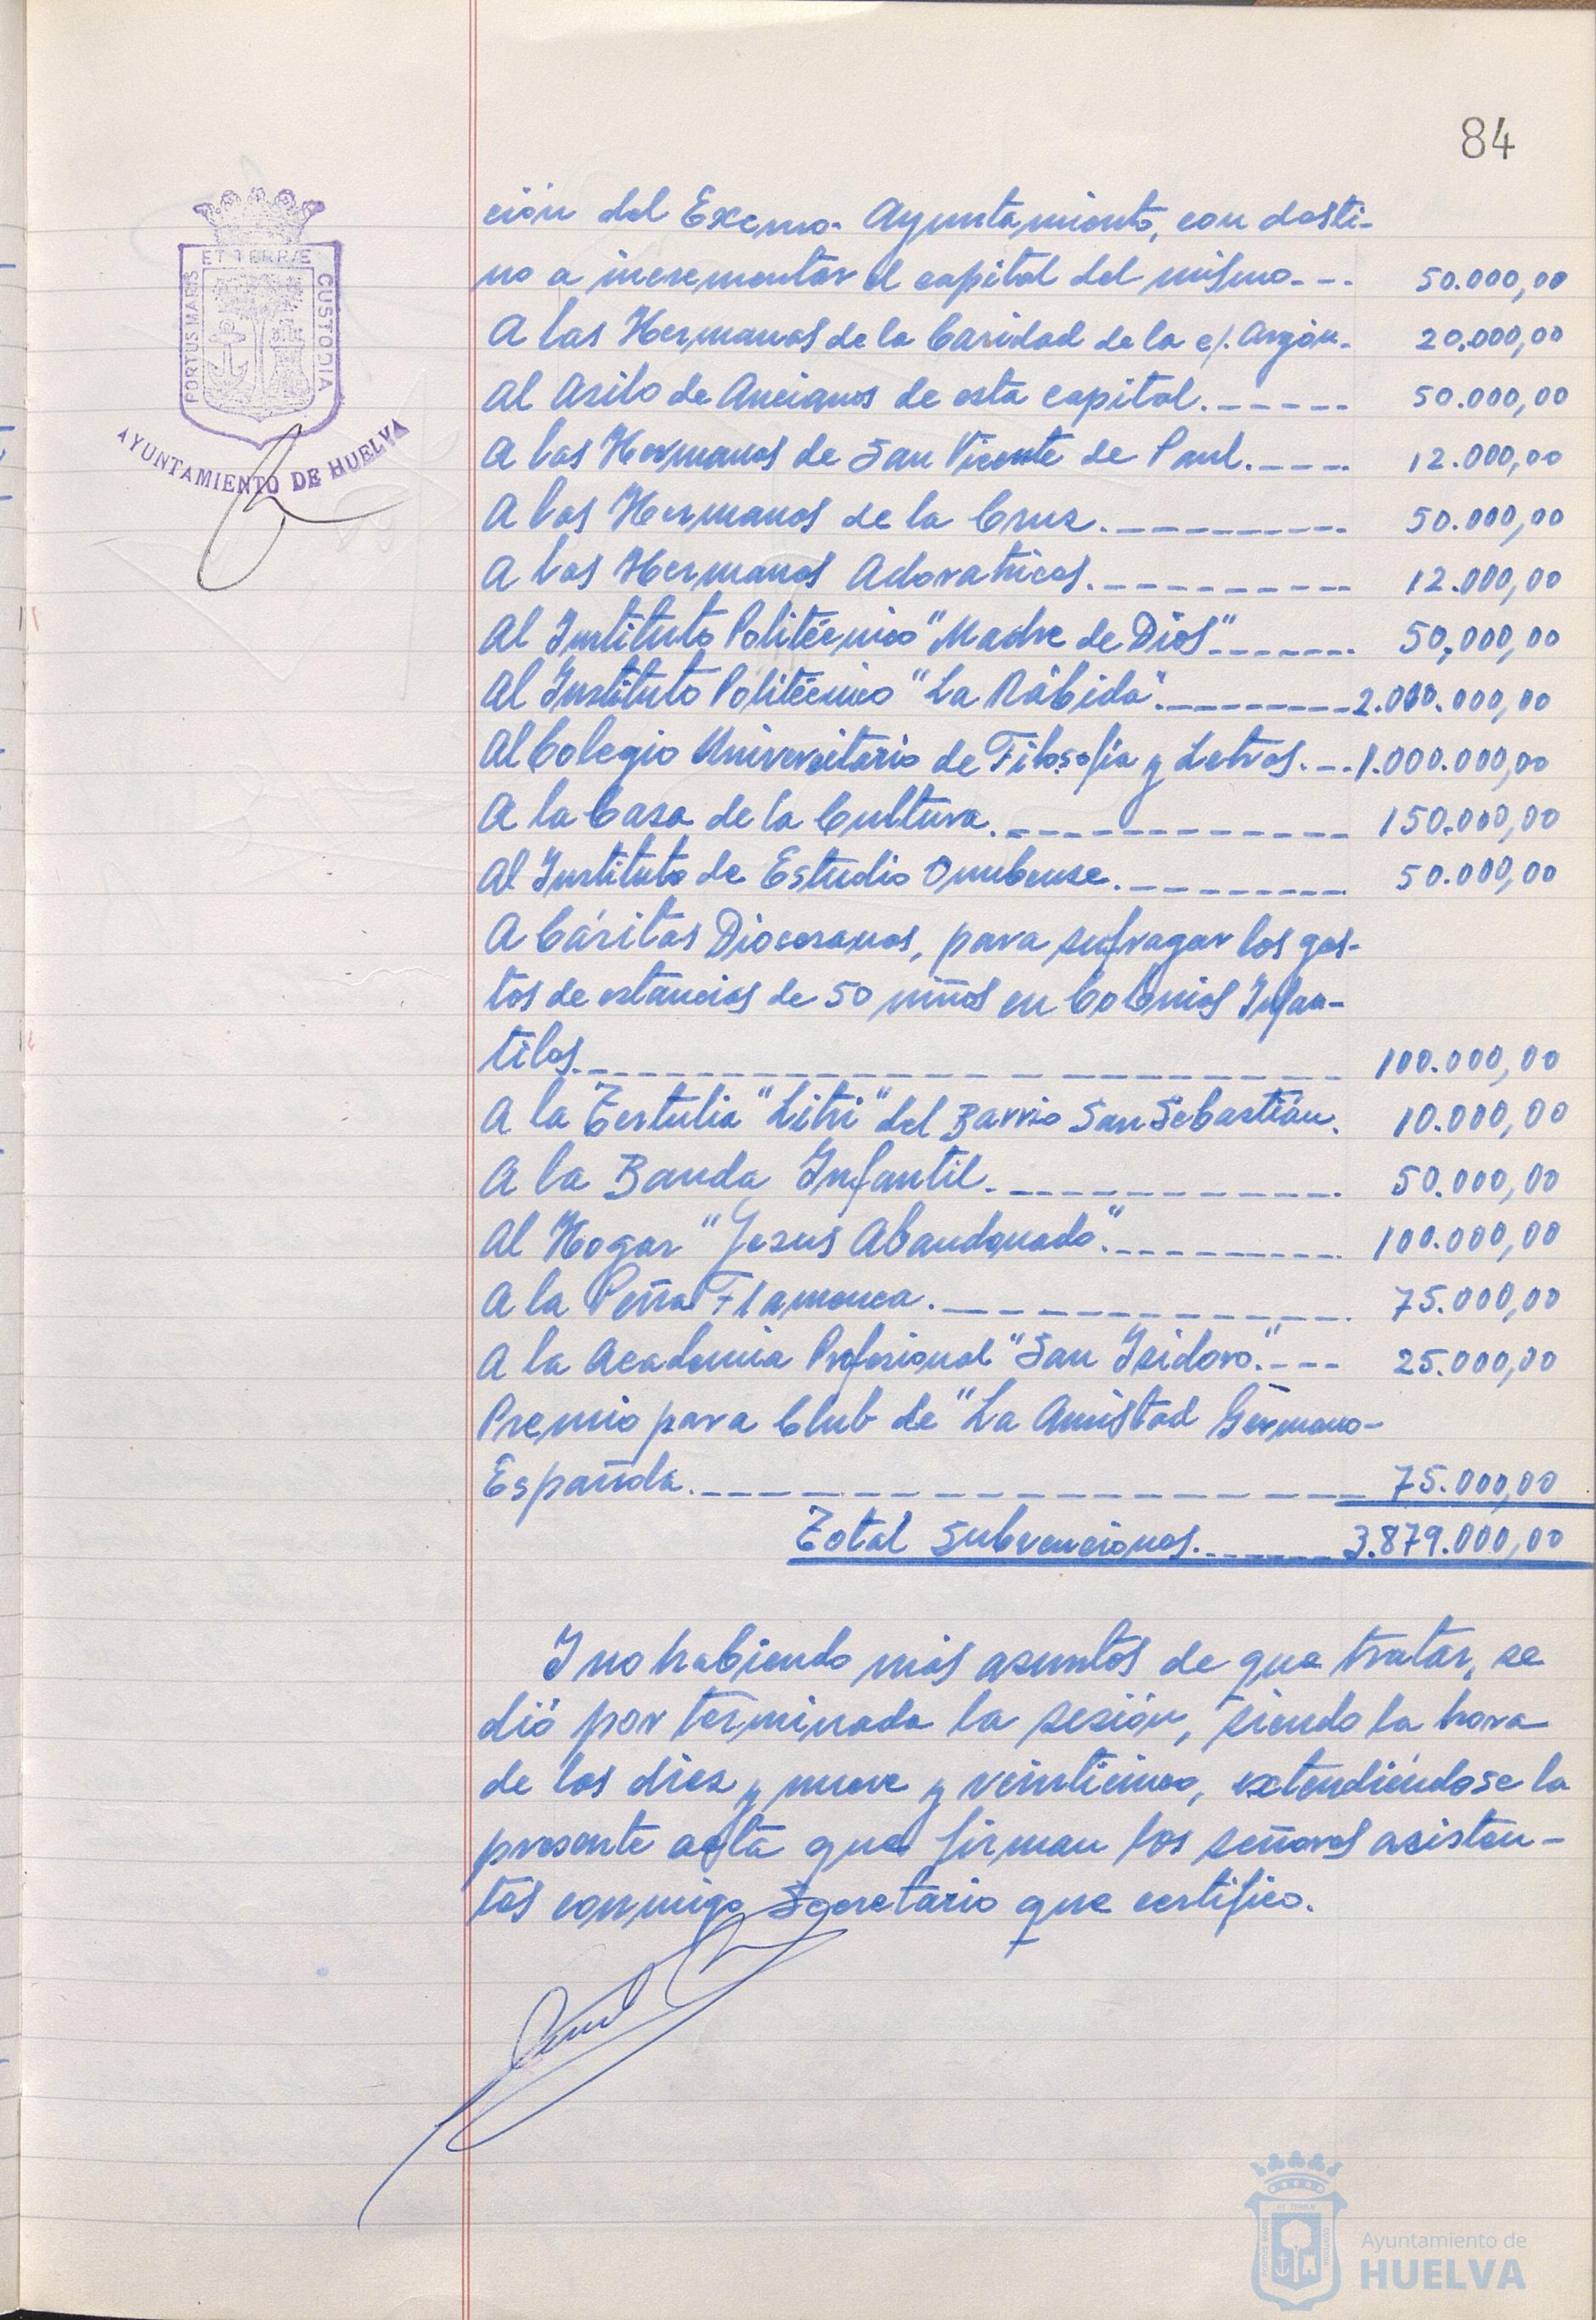 84
ET TERRÆ
PORTUS MARIS
CUSTODIA
AYUNTAMIENTO DE HUELVA
ción del Excmo. Ayuntamiento, con desti-
no a incrementar el capital del mismo---- 50.000,00
A las Hermanas de la Caridad de la c/. Argón- 20.000,00
Al Asilo de Ancianos de esta capital.------ 50.000,00
A las Hermanas de San Vicente de Paul.---- 12.000,00
A las Hermanas de la Cruz.---------- 50.000,00
A las Hermanas Adoratrices.---------- 12.000,00
Al Instituto Politécnico "Madre de Dios"------- 50.000,00
Al Instituto Politécnico "La Rábida".--------2.000.000,00
Al Colegio Universitario de Filosofía y Letras.--1.000.000,00
A la Casa de la Cultura.------------- 150.000,00
Al Instituto de Estudio Onubense.--------- 50.000,00
A Cáritas Diocesanas, para sufragar los gas-
tos de estancias de 50 niños en Colonias Infan-
tiles.---------------------- 100.000,00
A la Tertulia "Litri" del Barrio San Sebastián. 10.000,00
A la Banda Infantil.------------ 50.000,00
Al Hogar "Jesus Abandonado".--------- 100.000,00
A la Peña Flamenca.------------- 75.000,00
A la Academia Profesional "San Isidoro".--- 25.000,00
Premio para Club de "La Amistad Germano-
Española.------------------- 75.000,00
Total Subvenciones.------ 3.879.000,00
Y no habiendo más asuntos de que tratar, se
dió por terminada la sesión, siendo la hora
de las diez y nueve y veinticinco, extendiéndose la
presente acta que firman los señores asisten-
tes conmigo Secretario que certifico.
Ayuntamiento de
HUELVA